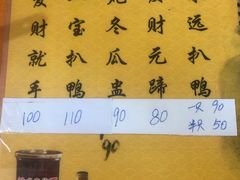 财就手
宝扒鸭
冬瓜盅
财元蹄
远扒鸭
100 110 90 80 一只 90
半只 50
90